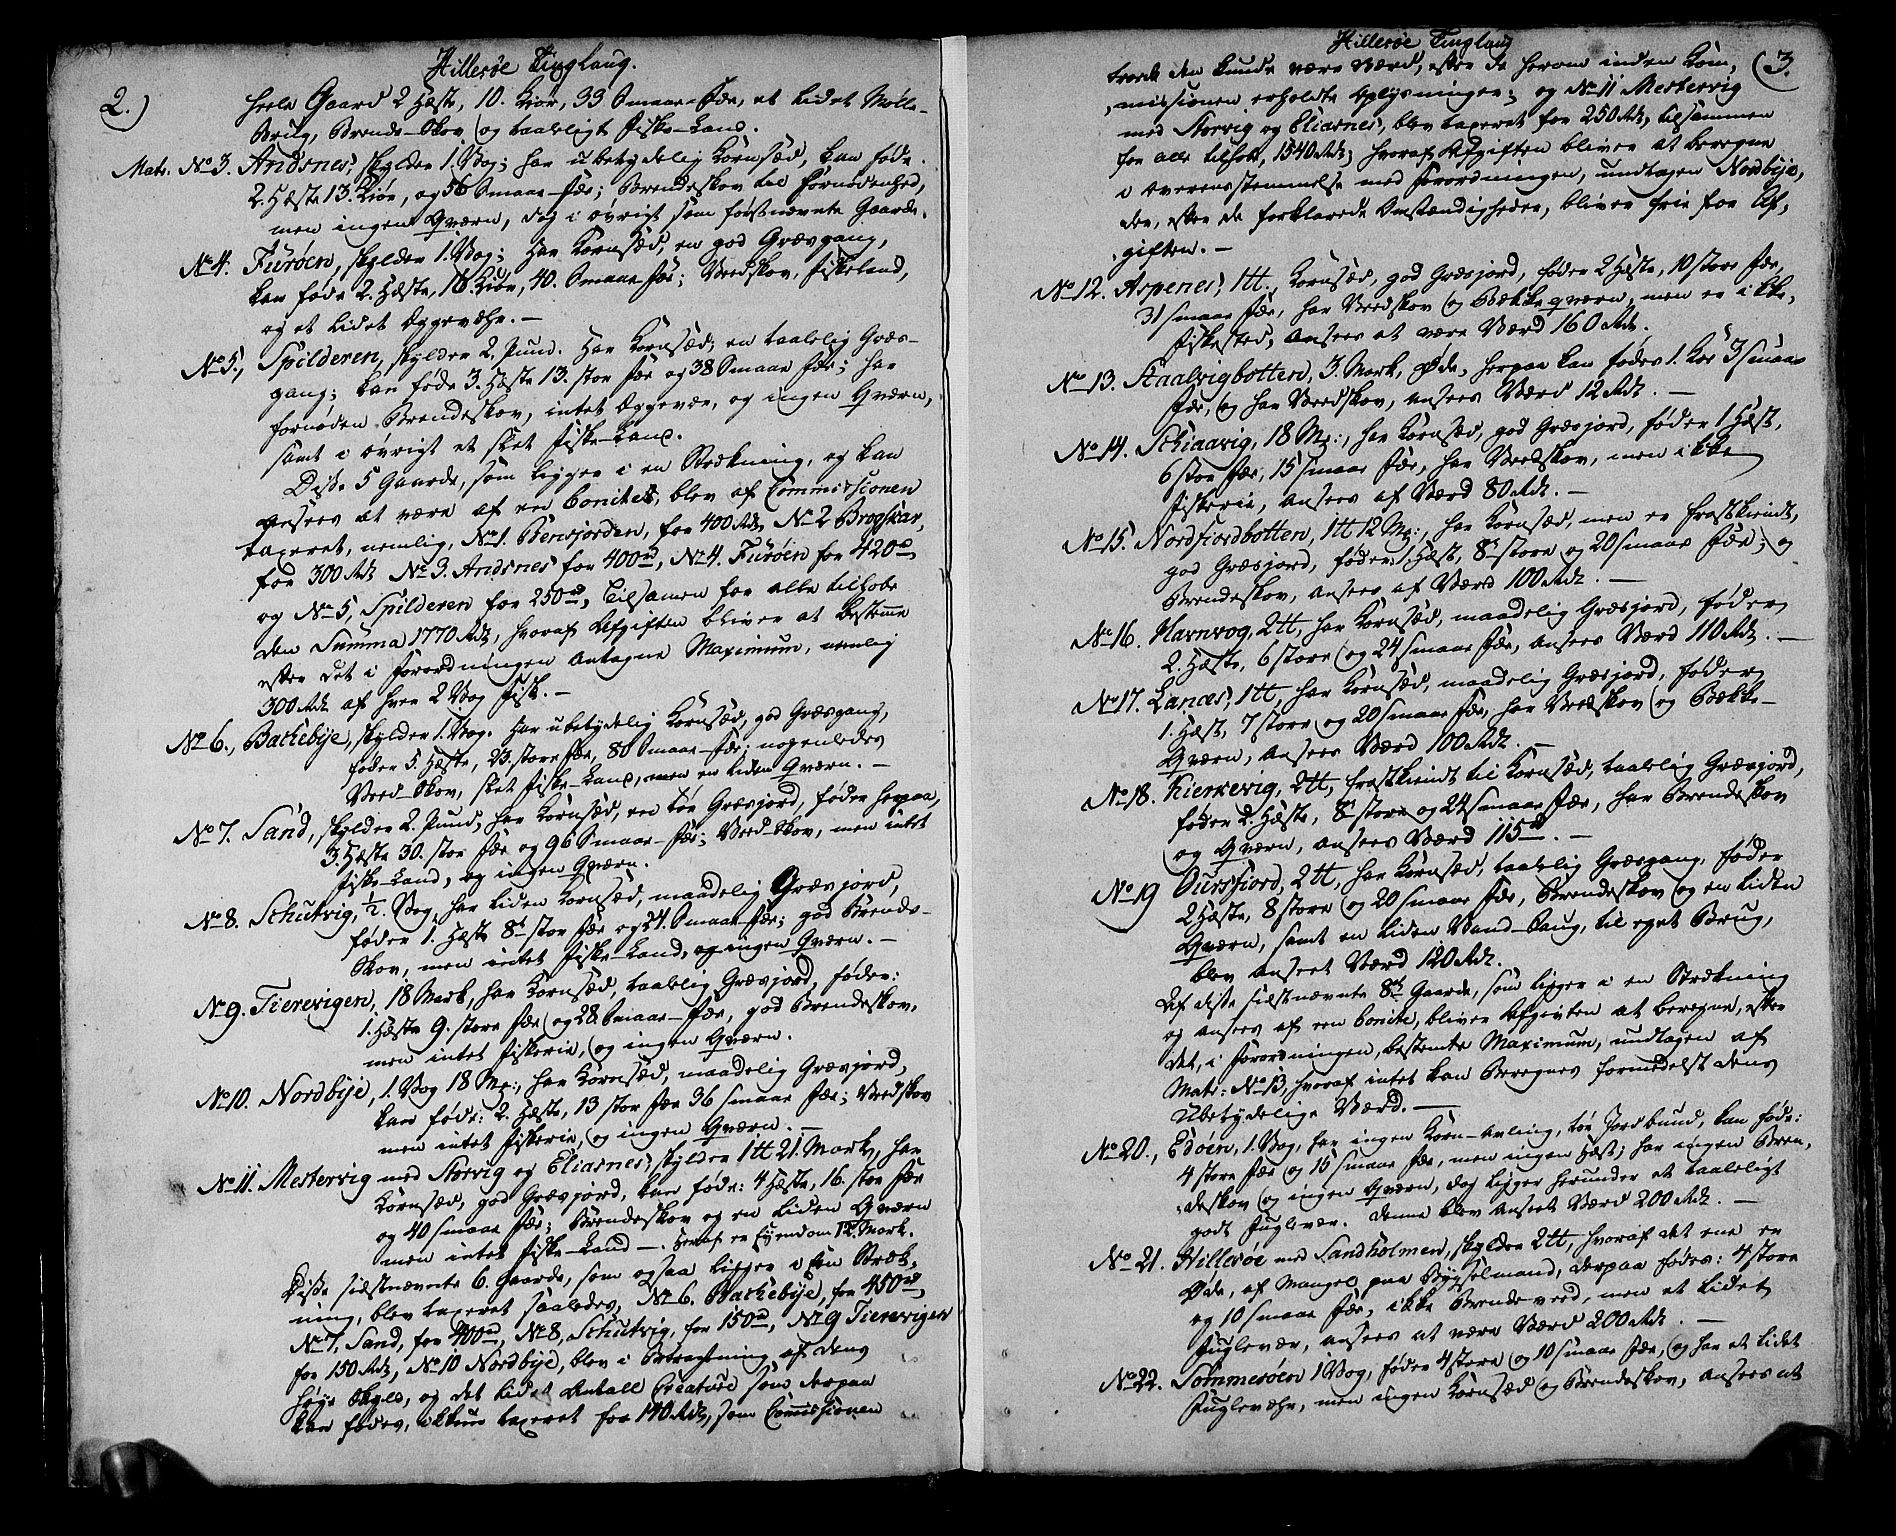 Hillesøe Tinglaug.
2.)
heele Gaard 2 Hæste, 10. Kiør, 33 Smaae-Fæe, et lidet Mølle-
Brug, Brende-Skov og taaleligt Fiske-Land.
Matr. No 3. Andsnes, skylder 1. Vog; har ubetydelig Kornsæd, kan føde
2. Hæste 13. Kiør, og 56 Smaae-Fæe; Brendeskov til Fornødenhed,
men ingen Qværn, dog i øvrigt som førstnævnte Gaarde.
No 4. Furøen, skylder 1. Vog; Har Kornsæd, en god Græsgang,
kan føde 2. Hæste, 16. Kiør, 40. Smaae Fæe; Vedskov, Fiskeland,
og et lidet Eggevæhr. —
No 5., Spilderen, skylder 2. Pund. Har Kornsæd; en taalelig Græs-
gang; kan føde 3. Hæste 13. stor Fæe og 38 Smaae Fæe; har
fornøden Brendeskov, intet Eggevær, og ingen Qværn,
samt i øvrigt et slet Fiske-Land.
Disse 5 Gaarde, som ligger i en Strækning, og kan
ansees at være af een bonitet, blev af Commissionen
taxeret, nemlig, No 1. Bensjorden, for 400 Rd. No 2 Brogskar,
for 300 Rd. No 3. Andsnes for 400 rd, No 4. Furøen for 420 rd,
og No 5, Spilderen for 250 rd, tilsamen for alle tilhobe
den Summa 1770 Rd, hvoraf Afgiften bliver at bestemme
efter det i Forordningen antagne Maximum, nemlig
300 Rd. af hver 2 Vog Fisk. —
No 6., Bachebye, skylder 1. Vog. Har ubetydelig Kornsæd, god Græsgang,
føder 5. Hæste, 23. store Fæe, 80 Smaae-Fæe; nogenledes
Veed-Skov, slet Fiske-Land, men en liden Qværn. —
No 7. Sand, skylder 2. Pund, har Kornsæd, een tør Græsjord, føder herpaa,
3. Hæste 30. stor Fæe og 96 Smaae-Fæe; Veed-Skov, men intet
Fiske-Land, og ingen Qværn.
No 8. Schutvig, 1/2. Vog, har liden Kornsæd, maadelig Græsjord,
føder 1. Hæst 8t stor Fæe og 24. Smaae-Fæe; god Brende-
Skov, men intet Fiske-Land, og ingen Qværn. —
No 9. Tierevigen, 18 Mark, har Kornsæd, taalelig Græsjord, føder:
1. Hæst 9. store Fæe og 28. Smaae-Fæe, god Brendeskov,
men intet Fiskerie, og ingen Qværn.
No 10. Nordbye, 1. Vog 18 Mr:, har Kornsæd, maadelig Græsjord,
kan føde: 2. Hæste, 13 stor Fæe 36 smaae Fæe; Vedskov
men intet Fiskerie, og ingen Qværn. —
No 11. Mestervig med Storvig og Eliasnes, skylder 1 tt 21. Mark, har
Kornsæd, god Græsjord, kan føde: 4 Hæste, 16. stor Fæe
og 40 smaae Fæe; Brendeskov og en liden Qværn
men intet Fiske-Land —. heraf er Eyendom 12. Mark.
Disse sidstnævnte 6. Gaarde, som ogsaa ligger i een Stræk-
ning, blev taxeret saaledes, No 6. Bachebye, for 450 rd,
No 7, Sand, for 400 rd, No 8, Schutvig, for 150 rd, No 9 Tierevigen
for 150 Rd, No 10 Nordbye, blev i Betragtning af dens
høye Skyld, og det lidet Antall Creature som derpaa
kan fødes, ikkun taxeret for 140 Rd, som Commissionen
Hillesøe Tinglaug
3.
troede den kunde være værd, efter de herom inden Com-
missionen erholdte Oplysninger; og No 11 Mestervig
med Storvig og Eliasnes, blev taxeret for 250 Rd, tilsammen
for alle tilhobe, 1540 Rd; hvoraf Afgiften bliver at beregne
i Overensstemmelse med Forordningen, undtagen Nordbye,
der, efter de forklarede Omstændigheder, bliver frie for Af-
giften. —
No 12. Aspenes, 1 tt., Kornsæd, god Græsjord, føder 2 Hæste, 10 store Fæe,
31 smaae Fæe, har Vedskov og Bække qværn, men er ikke
Fiskested, ansees at være Værd 160 Rd.
No 13. Staalvigbotten, 3. Mark, Øde, herpaa kan fødes 1. Koe 3 smaae
Fæe, og har Vedskov, ansees Værd 12 Rd. —
No 14. Schiaavig, 18 Mr:, har Kornsæd, god Græsjord, føder 1 Hæst,
6 stor Fæe, 15 smaae Fæe, har Vedskov, men ikke
Fiskerie, ansees af Værd 80 Rd. —
No 15. Nordfiordbotten, 1 tt 12 Mr:, har Kornsæd, men er frostkiendt,
god Græsjord, føder: 1 Hæst, 8t store og 20 smaae Fæe; og
Brendeskov, ansees af Værd 100 Rd. —
No 16. Havnvog, 2 tt, har Kornsæd, maadelig Græsjord, føder
2. Hæste, 6 store og 24 smaae Fæe, ansees Værd 110 Rd. —
No 17. Lanæs, 1 tt, har Kornsæd, maadelig Græsjord, føder
1. Hæst, 7 store og 20 smaae Fæe, har Vedskov og Bække-
Qværn, ansees Værd 100 Rd. —
No 18. Kierrevig, 2 tt, frostkiendt til Kornsæd, taalelig Græsjord,
føder 2. Hæste, 8t store og 24 smaae Fæe, har Brendeskov
og Qværn, ansees Værd 115 rd. —
No 19 Oursfiord, 2 tt, har Kornsæd, taalelig Græsgang, føder
2 Hæste, 8 store og 20 smaae Fæe, Brendeskov og en liden
Qværn, samt en liden Vand-Saug, til eget Brug,
blev anseet Værd 120 Rd.
Af disse sidstnævnte 8te Gaarde, som ligger i en Strækning
og ansees af een bonite, bliver Afgivten at beregne, efter
det, i Forordningen, bestemte Maximum, undtagen af
Matr: No 13, hvoraf intet kan Beregnes formedelst dens
Ubetydelige Værd. —
No 20., Edøen, 1. Vog, har ingen Korn-Avling, tør Jordbund, kan føde:
4 store Fæe og 15 smaae Fæe, men ingen Hæst; har ingen Bren-
deskov og ingen Qværn, dog ligger herunder et taaleligt
godt Fuglevær. Denne blev anseet Værd 200 Rd. —
No 21. Hillesøe med Sandholmen, skylder 2 tt, hvoraf det ene er
Øde, af Mangel paa Bygselmand, derpaa fødes: 4 store
og 10 smaae Fæe, ikke Brende-veed, men et lidet
Fuglevær, ansees at være Værd 200 Rd. —
No 22. Sommerøen 1 Vog, føder 4 store og 10 smaae Fæe, og har et lidet
Fuglevæhr, men ingen Kornsæd og Brendeskov, ansees at